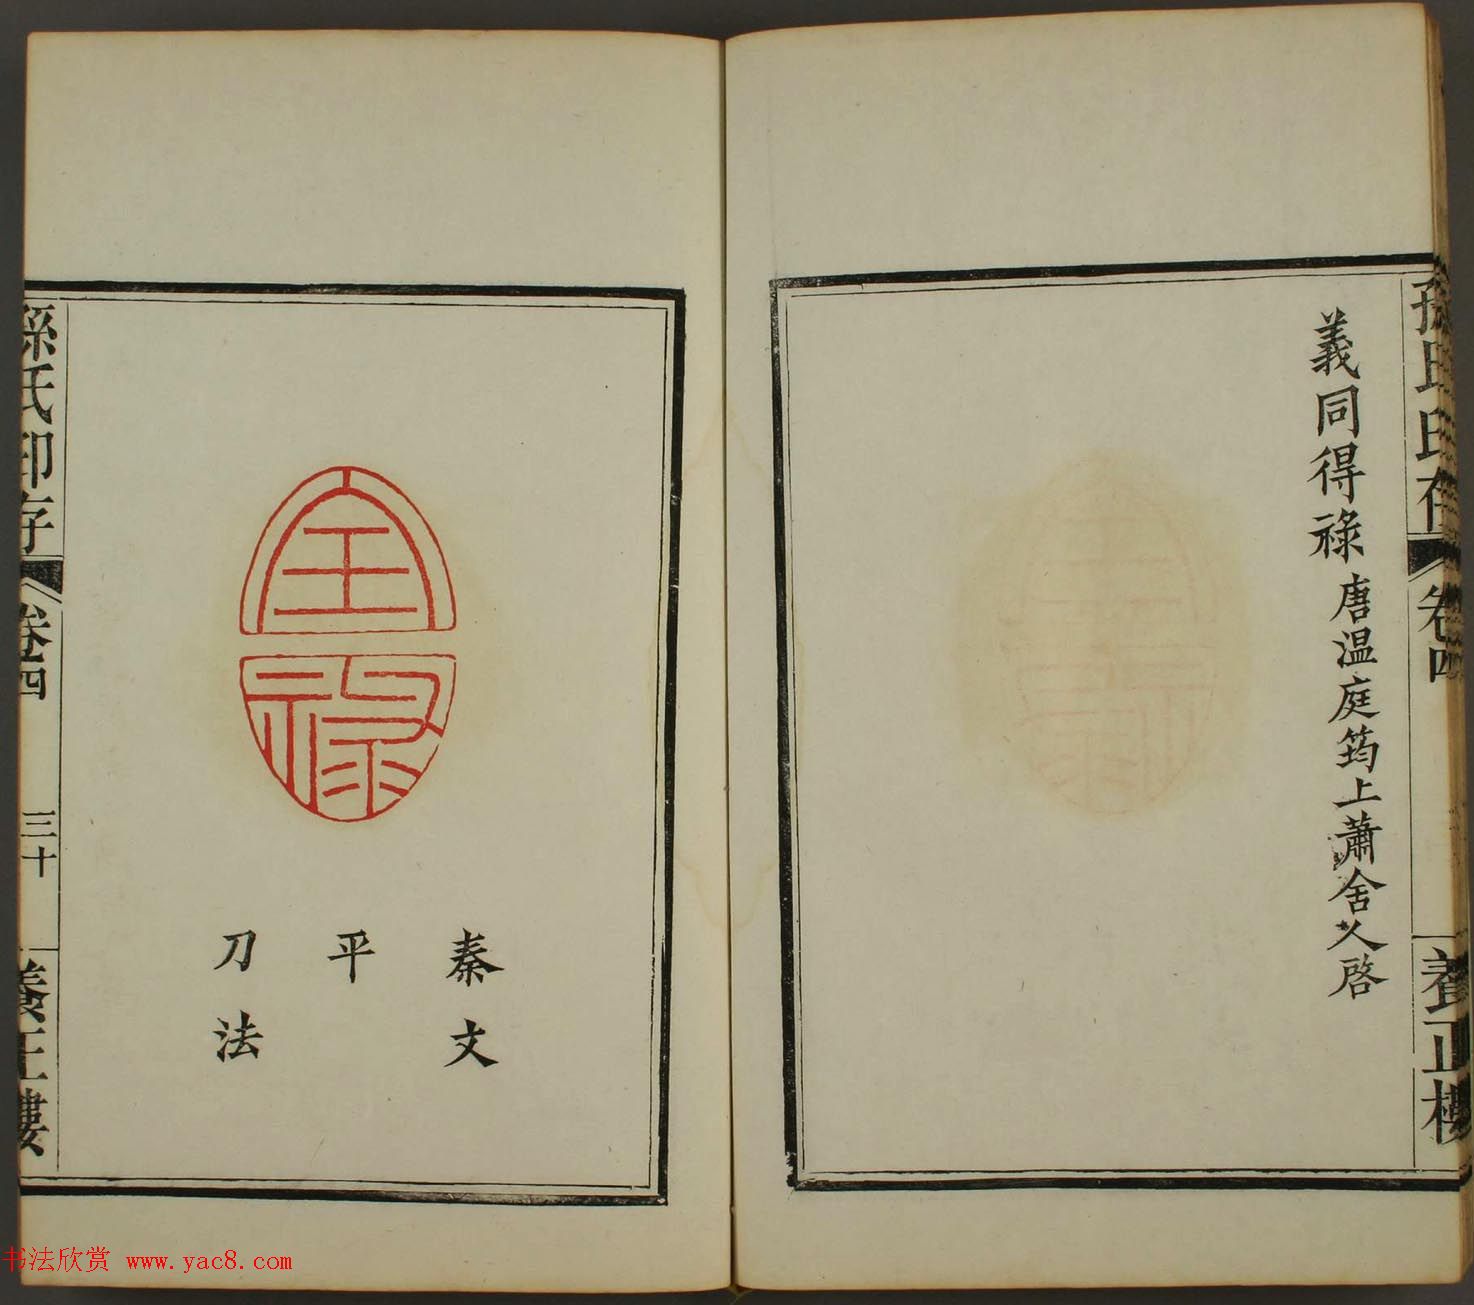 義同得祿唐温庭筠上蕭舍人啓
孫氏印存
卷四
養正樓
全祿
秦文
平
刀法
孫氏印存
卷四
三十
養正樓
书法欣赏 www.yac8.com